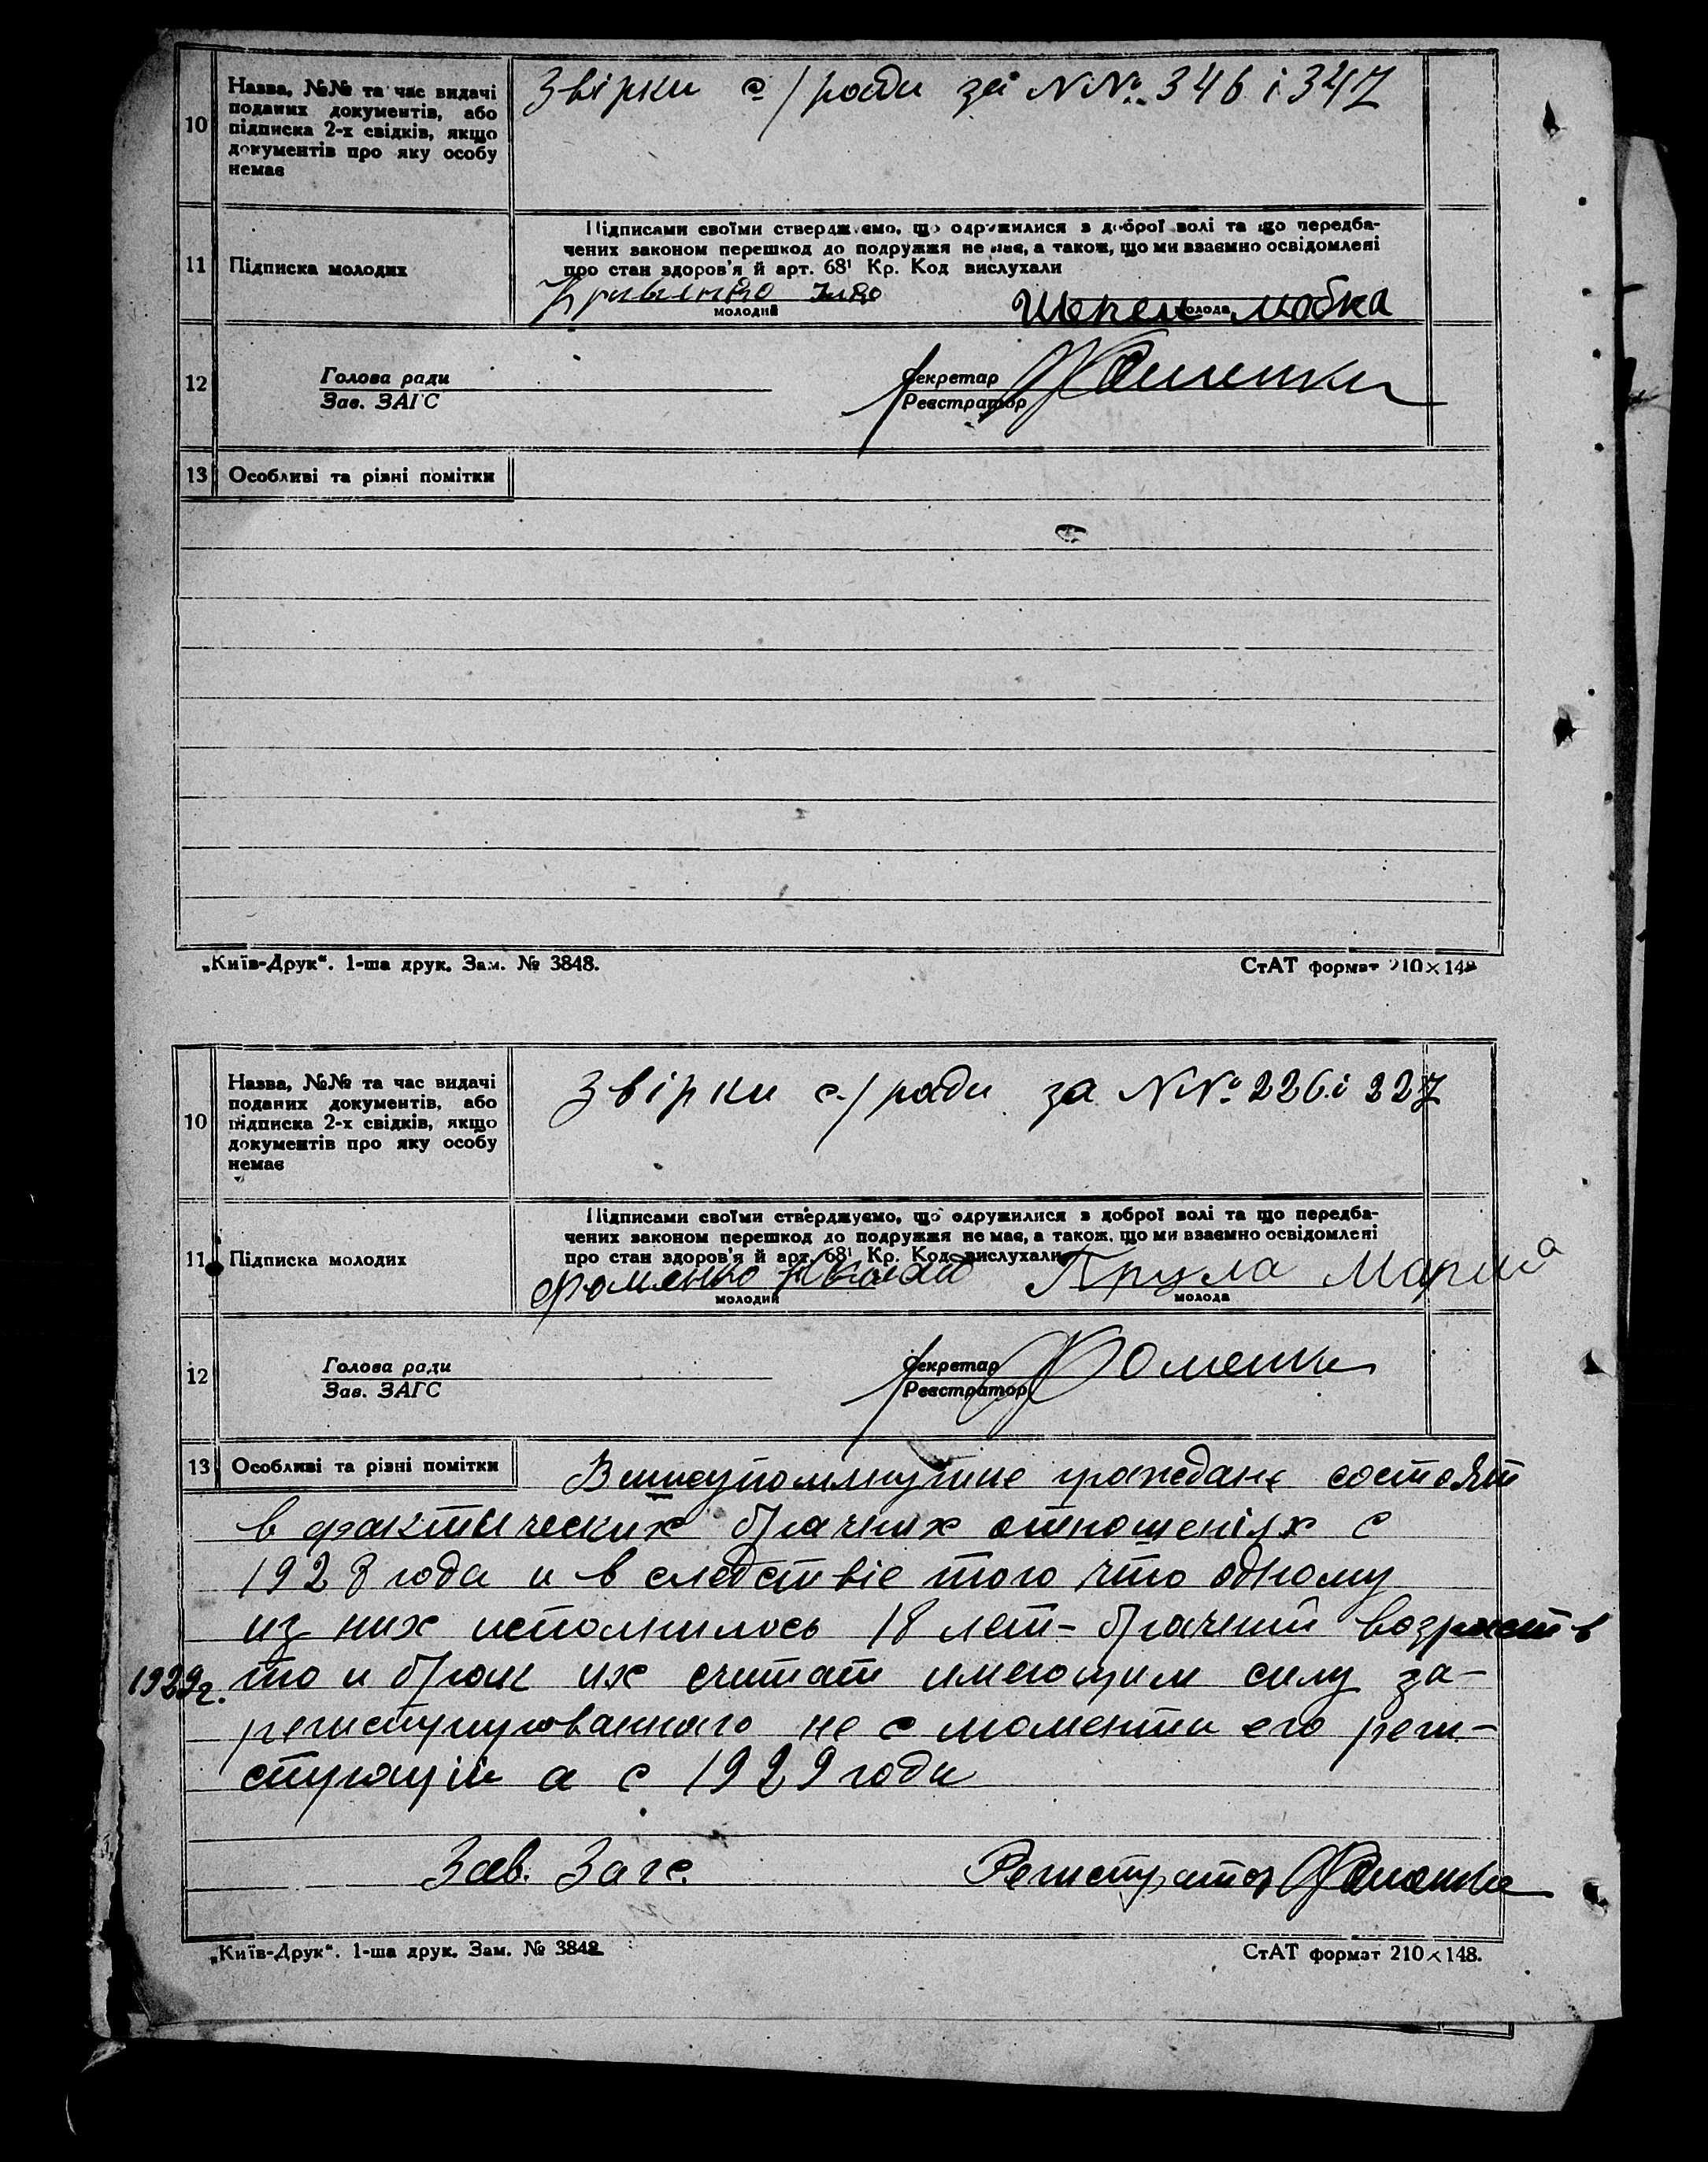 10
Назва, №№ та час видачі
поданих документів, або
підписка 2-х свідків, якщо
документів про яку особу
немає
Звірки с/ради за N№ 346 і 347
11
Підписка молодих
Підписами своїми стверджуємо, що одружилися з доброї волі та що передба-
чених законом перешкод до подружжя не має, а також, що ми взаємно освідомлені
про стан здоров'я й арт. 68¹ Кр. Код вислухали
молодий
молода
12
Голова ради
Зав. ЗАГС
Секретар
Реєстратор
13
Особливі та різні помітки
„Київ-Друк“. 1-ша друк. Зам. № 3848.
СтАТ формат 210×148
10
Назва, №№ та час видачі
поданих документів, або
підписка 2-х свідків, якщо
документів про яку особу
немає
Звірки с/ради за N№ 226 і 227
11
Підписка молодих
Підписами своїми стверджуємо, що одружилися з доброї волі та що передба-
чених законом перешкод до подружжя не має, а також, що ми взаємно освідомлені
про стан здоров'я й арт. 68¹ Кр. Код вислухали
Прула Мария
молодий
молода
12
Голова ради
Зав. ЗАГС
Секретар
Реєстратор
Фоменки
13
Особливі та різні помітки
Вишеупомянутие граждане состоят
в фактических брачних отношеніях с
1928 года и в следствіе того что одному
из них исполнилось 18 лет - брачний возраст в
1929г. то и брак их считат имеющим силу за-
регистрированного не с момента его реги-
страціи а с 1929 года
Зав. Загс.
Регистратор
„Київ-Друк“. 1-ша друк. Зам. № 3848
СтАТ формат 210×148.